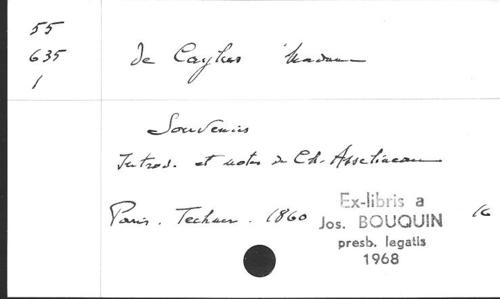 55
635
1
de Caylus Madame
Souvenirs
Introd. et notes de Ch. Asselineau
Paris. Techener. 1860
16
Ex-libris a
Jos. BOUQUIN
presb. legatis
1968